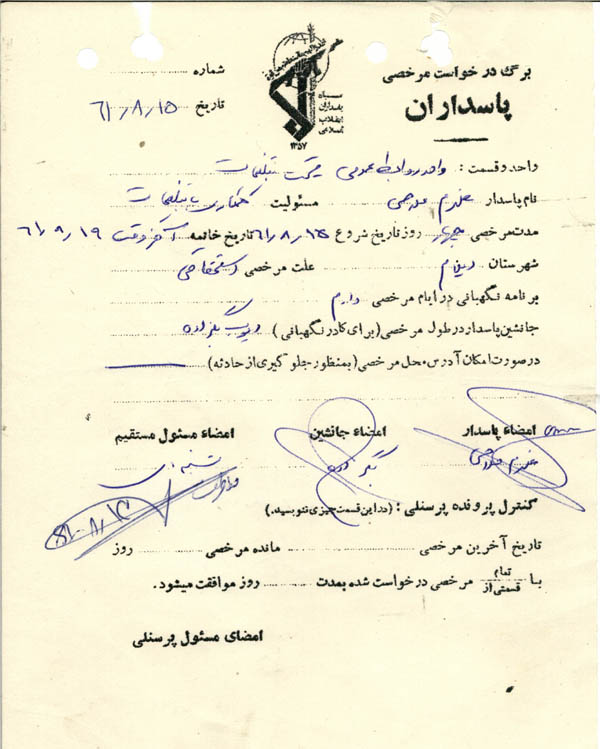 برگ درخواست مرخصی
پاسداران
شماره
تاریخ ۶۱/۸/۱۵
سپاه
پاسداران
انقلاب
اسلامی
۱۳۵۷
واحد و قسمت : واحد روابط عمومی قسمت تبلیغات
نام پاسدار مسئولیت همکاری با تبلیغات
مدت مرخصی چهار روز تاریخ شروع ۶۱/۸/۱۵ تاریخ خاتمه آخر وقت ۶۱/۸/۱۹
شهرستان علت مرخصی استحقاقی
برنامه نگهبانی در ایام مرخصی دارم
جانشین پاسدار در طول مرخصی (برای کادر نگهبانی)
در صورت امکان آدرس محل مرخصی (بمنظور جلوگیری از حادثه)
امضاء پاسدار امضاء جانشین امضاء مسئول مستقیم
کنترل پرونده پرسنلی : (در این قسمت چیزی ننویسید.)
تاریخ آخرین مرخصی مانده مرخصی روز
با تمام / قسمتی از مرخصی درخواست شده بمدت روز موافقت میشود.
امضای مسئول پرسنلی